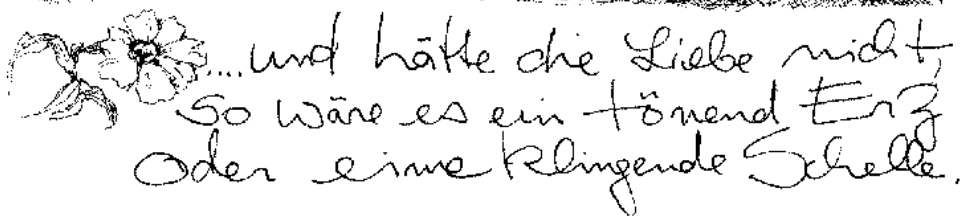 ....und hätte die Liebe nicht,
so wäre es ein tönend Erz
oder eine klingende Schelle.